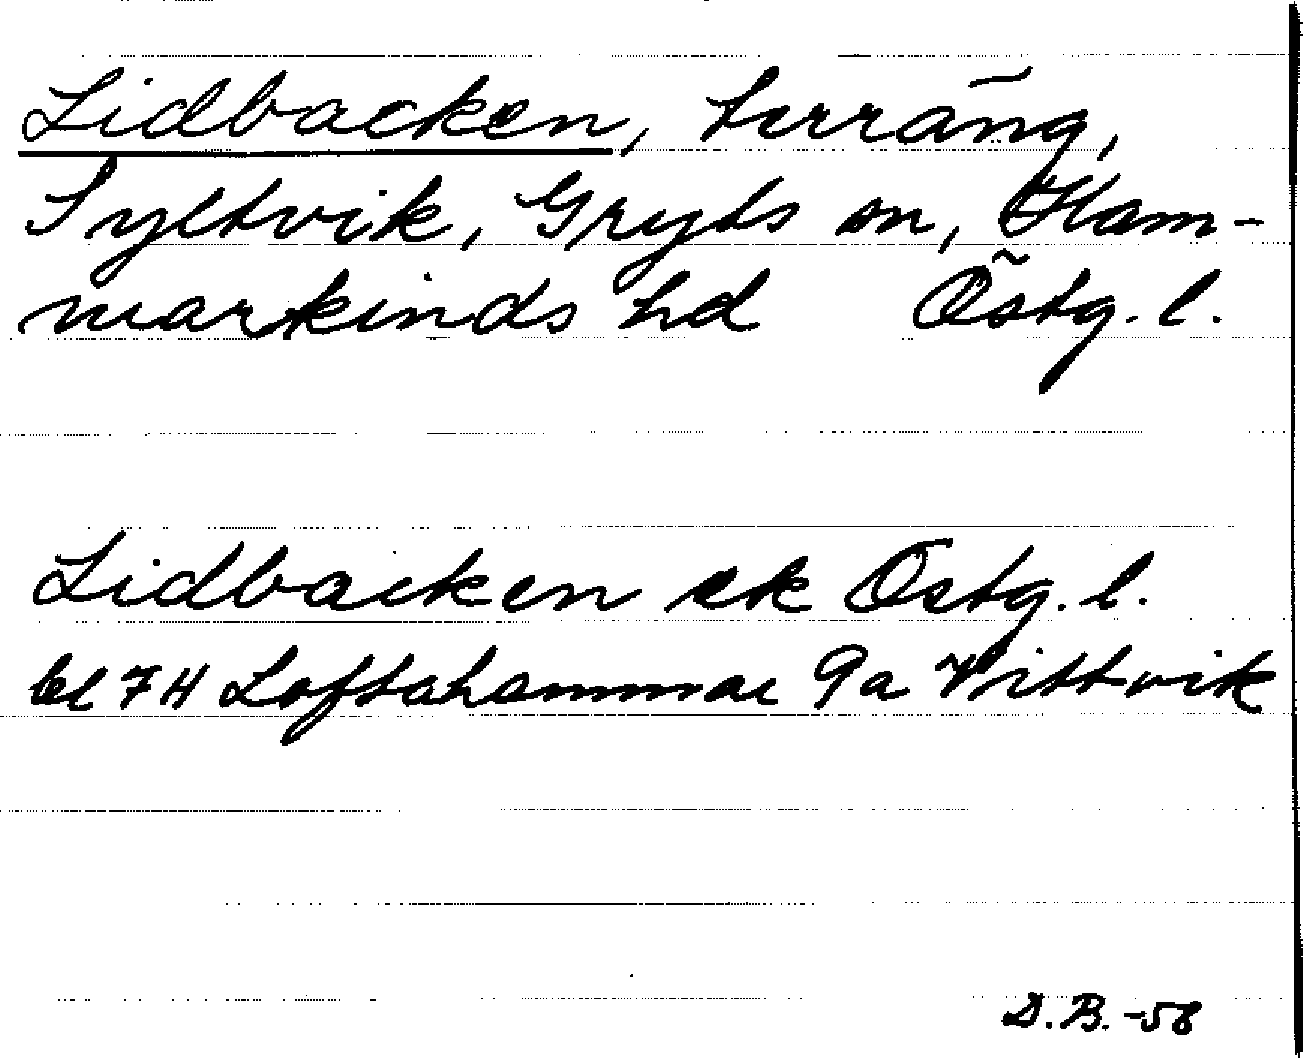 Lidbacken, terräng,
Syltvik, Gryts sn, Ham-
markinds hd Östg. l.
Lidbacken ek Östg. l.
bl 7H Loftahammar 9a Vittvik
D.B. -58